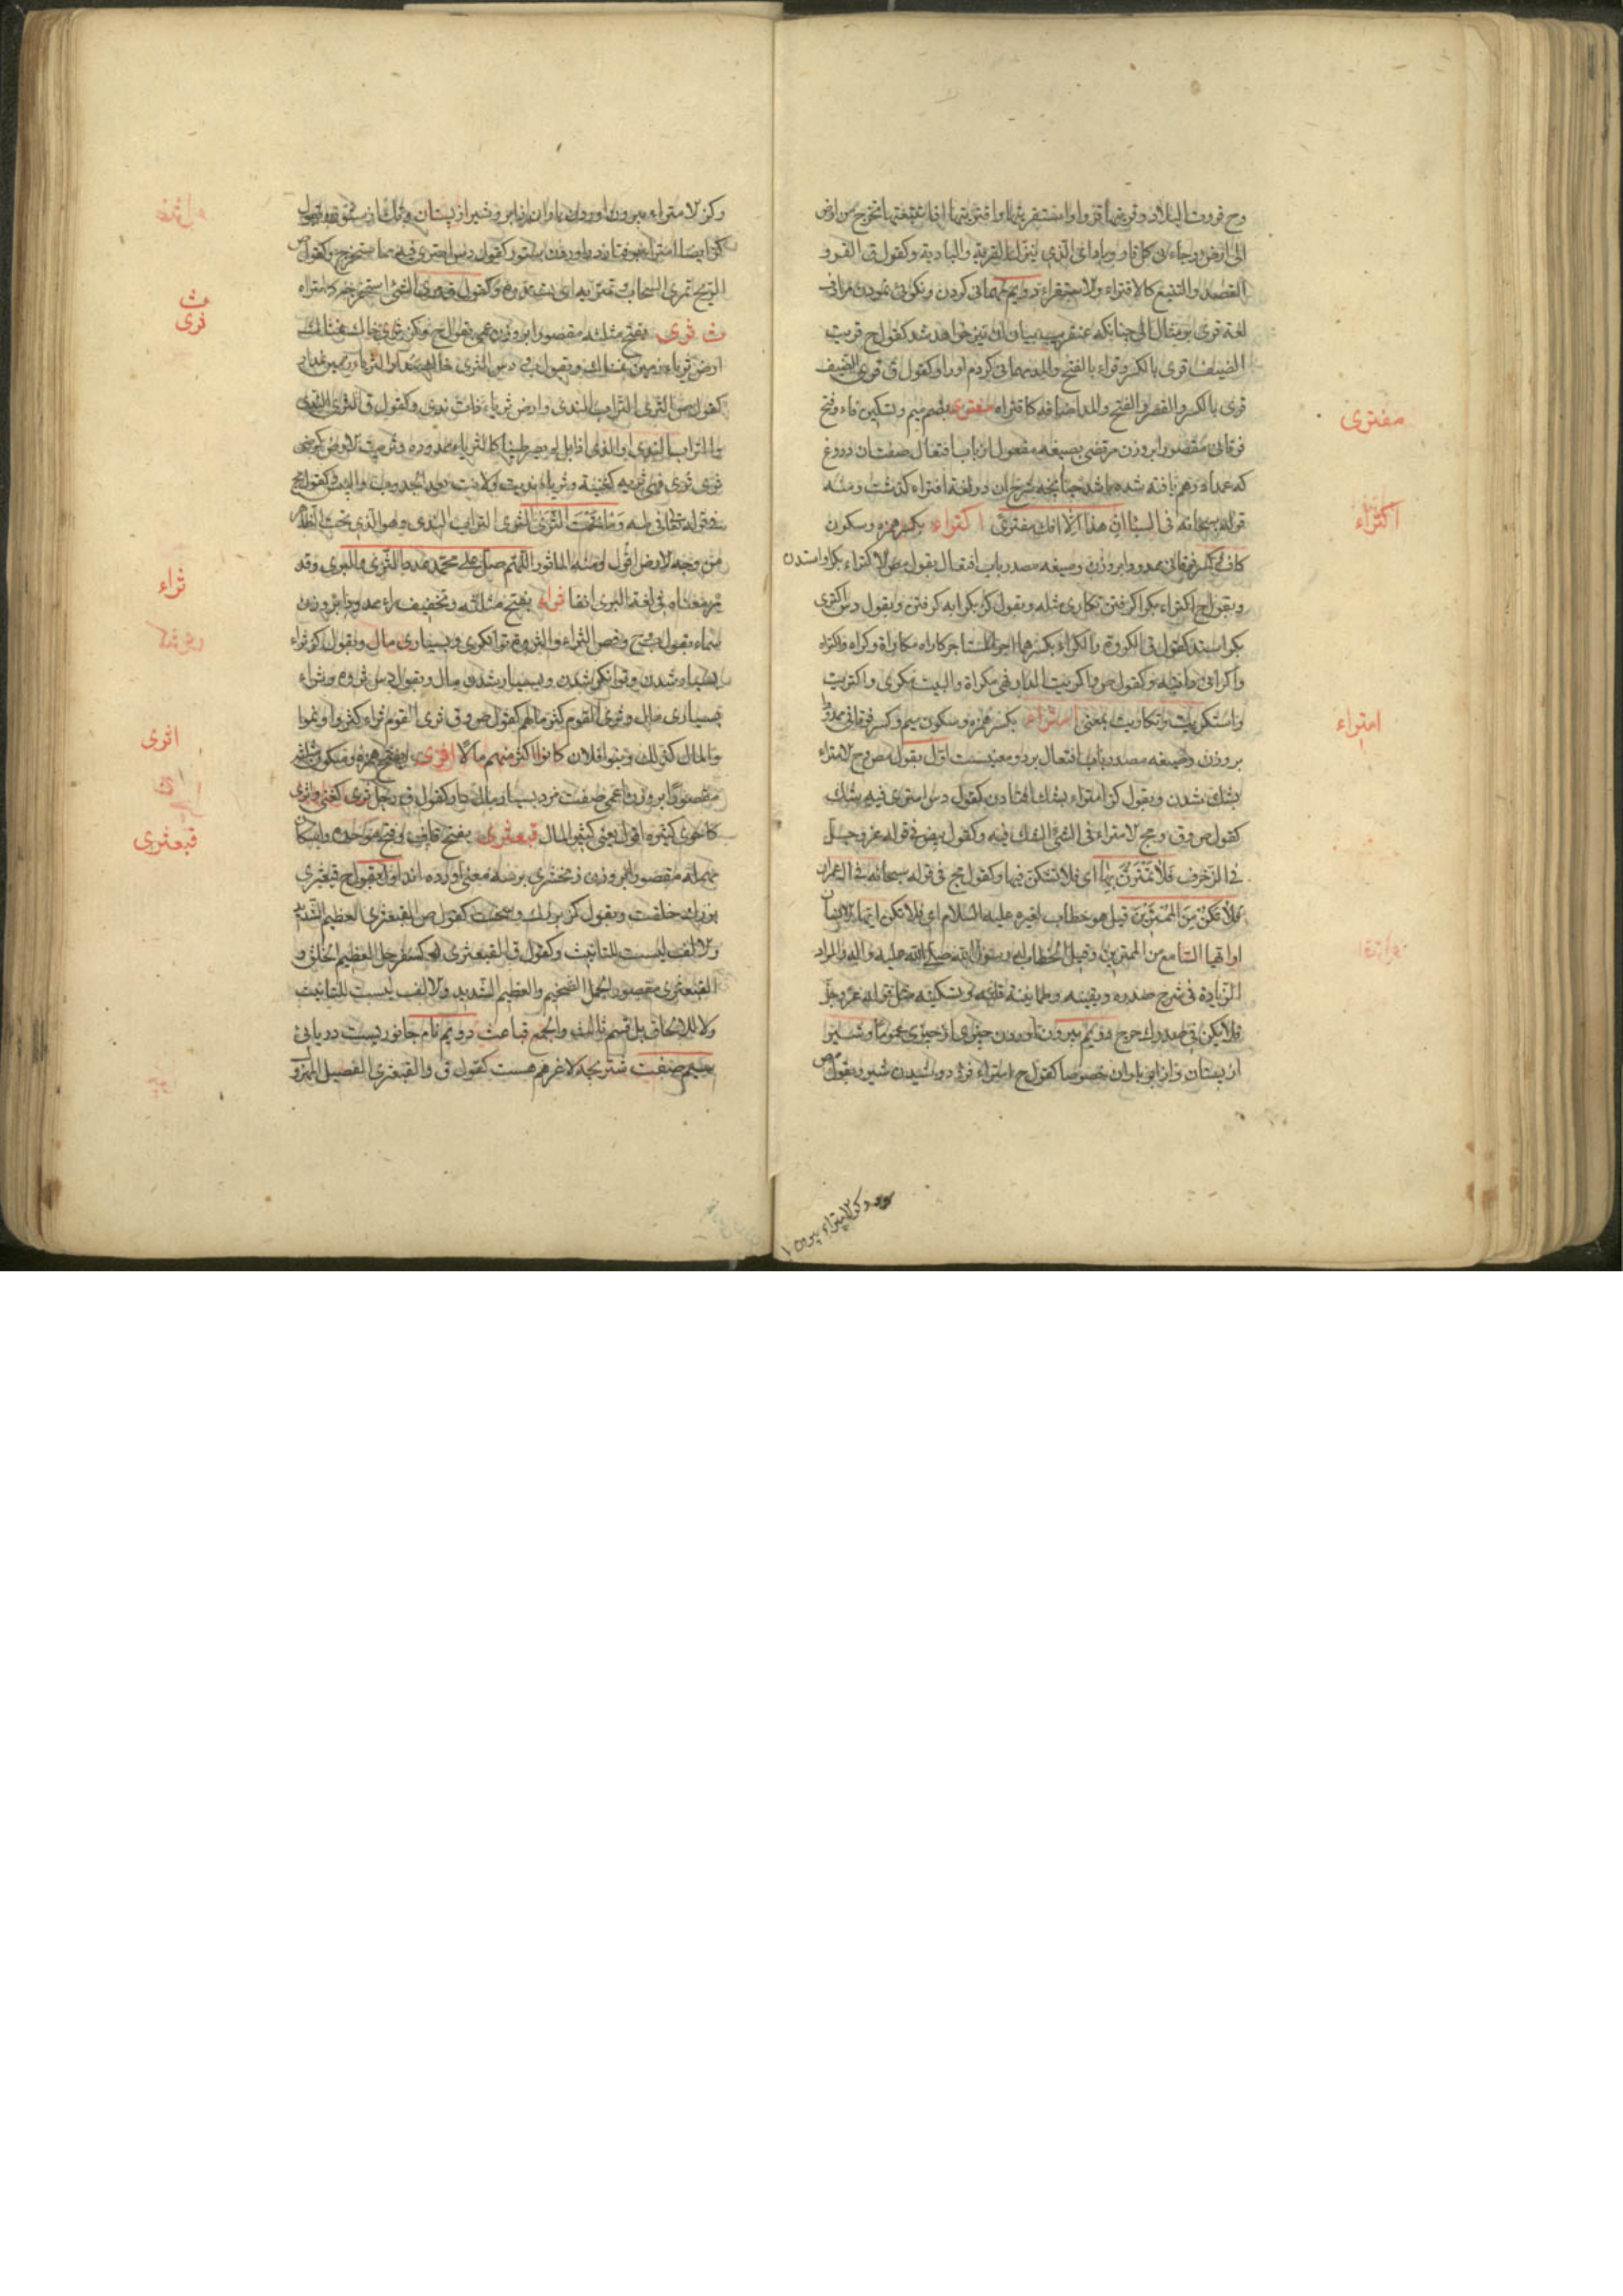 وح قروت البلاد وقريتها قروا واستقريتها واقتريتها اذا تتبعتها تخرج من ارض
الى ارض وجاءنى كل قار وباد اى الذي ينزل القرية والبادية وكقول ق القرو
القصد والتتبع كالاقتراء والاستقراء دويم مهمانى كردن ونكوئى نمودن
لغة قرى بر مثال الى چنانكه عنقريب بيان ان نيز خواهد شد كقول ح قريت
الضيف قرى بالكسر وقراء بالفتح والمد مهمانى كردم او را وكقول ق قرى الضيف
قرى بالكسر والقصر والفتح والمد اضافه كاقتراه مفترى بضم ميم وتسكين فاء وفتح
فوقانى مقصور بروزن مرتضى بصيغه مفعول از باب افتعال صفت ان دروغ
كه عمدا فرهم بافته شده باشد چنانچه شرح ان در لغة افتراء كذشت ومنه
قوله سبحانه فى السبا ان هذا الا افك مفترى اكتراء بكسر همزه وسكون
كاف وكسر فوقانى ممدود بروزن وصيغه مصدر باب افتعال يقول ص الاكتراء بكرا واستدن
ويقول ح اكتراء بكرا كرفتن تكارى مثله ويقول كز بكرايه كرفتن ويقول دس اكترى
بكرا ستد كقول ق الكروة والكراء بكسرهما اجرة المستاجر كاراه مكاراة وكراء واكتراه
واكرانى دابته وكقول ص واكريت الدار فهى مكراة والبيت مكرى واكتريت
واستكريت وتكاريت بمعنى امتراء بكسر همزه وسكون ميم وكسر فوقانى ممدود
بر وزن وصيغه مصدر باب افتعال بر دو معنيست اول يقول ص وح الامتراء
بشك شدن ويقول كز امتراء بشك افتادن كقول دس امترى فيه بشك
كقول ص وق ومج الامتراء فى الشئ الشك فيه وكقول بيض فى قوله عز وجل
فى الزخرف فلا تمترن بها اى فلا تشكن فيها وكقول مج فى قوله سبحانه فى ال عمران
فلا تكن من الممترين قيل هو خطاب لغيره عليه السلام اى فلا تكن ايها الانسان
او ايها السامع من الممترين وقيل الخطاب لرسول الله صلى الله عليه واله والمراد
الزيادة فى شرح صدره ويقينه وطمانينة قلبه وتسكينه مثل قوله عز وجل
فلا يكن فى صدرك حرج دويم بيرون اوردن چيزى از چيزى عموما وشير
از پستان واز ابر باران خصوصا كقول ح امتراء فرو دوشيدن شير ويقول ص
وكز الامتراء بيرون
مفترى
اكتراء
امتراء
وكز الامتراء بيرون اوردن باران از ابر وشير از پستان
الريح تمرى السحاب وتمتريه اى تستدره وكقول ق ومرى الشئ استخرجه كامتراه
ث ثرى بفتح مثلثه مقصور بروزن عمى يقول ح وكز ثرى خاك نمناك
ارض ثرياء زمين نمناك
كقول ص الثرى التراب الندى وارض ثرياء ذات ندى وكقول ق الثرى الندى
والتراب الندى او الذى اذا بل لم يصر طينا كالثرياء ممدوده وثريت الارض كرضى
ثرى فهى ثرية كغنية وثرياء نديت ولانت بعد الجدوبة واليبس وكقول مج
فى قوله تعالى فى طه وما تحت الثرى الثرى التراب الندى وهو الذى تحت الظاهر
من وجه الارض اقول ومنه الماثور اللهم صل على محمد عدد الثرى والبرى وقد
مر معناه فى لغة البرى انفا ثراء بفتح مثلثه وتخفيف راء ممدود بروزن
سماء يقول ح وص الثراء والثروة توانكرى وبسيارى مال ويقول كز ثراء
بسيار شدن وتوانكر شدن وبسيار شدن مال ويقول دس ثروه وثراء
بسيارى مال وثرى القوم كثر مالهم كقول ص وق ثرى القوم ثراء كثروا ونموا
والمال كذلك وبنو فلان كانوا اكثر منهم مالا اثرى بفتح همزه وسكون مثلثه
مقصور بروزن اعمى صفت مرد بسيار مال دار وكقول ق رجل ثرى كغنى واثرى
كاحوى كثيره اقول يعنى كثير المال قبعثرى بفتح قاف وفتح موحده واسكان
مهمله مقصور بروزن زمخشرى بر سه معنى اورده اند اول يقول ح قبعثرى
بزرك خلقت ويقول كز بزرك وسخت كقول ص القبعثرى العظيم الشديد
والالف ليست للتانيث وكقول ق القبعثرى كسفرجل العظيم الخلق و
القبعثرى مقصور الجمل الضخيم والعظيم الشديد والالف ليست للتانيث
ولا للالحاق بل قسم ثالث والجمع قباعث دويم نام جانوريست دريايى
سيم صفت شتر بچه لاغر هم هست كقول ق والقبعثرى الفصيل المهزو
ث
ثرى
ثراء
اثرى
قبعثرى